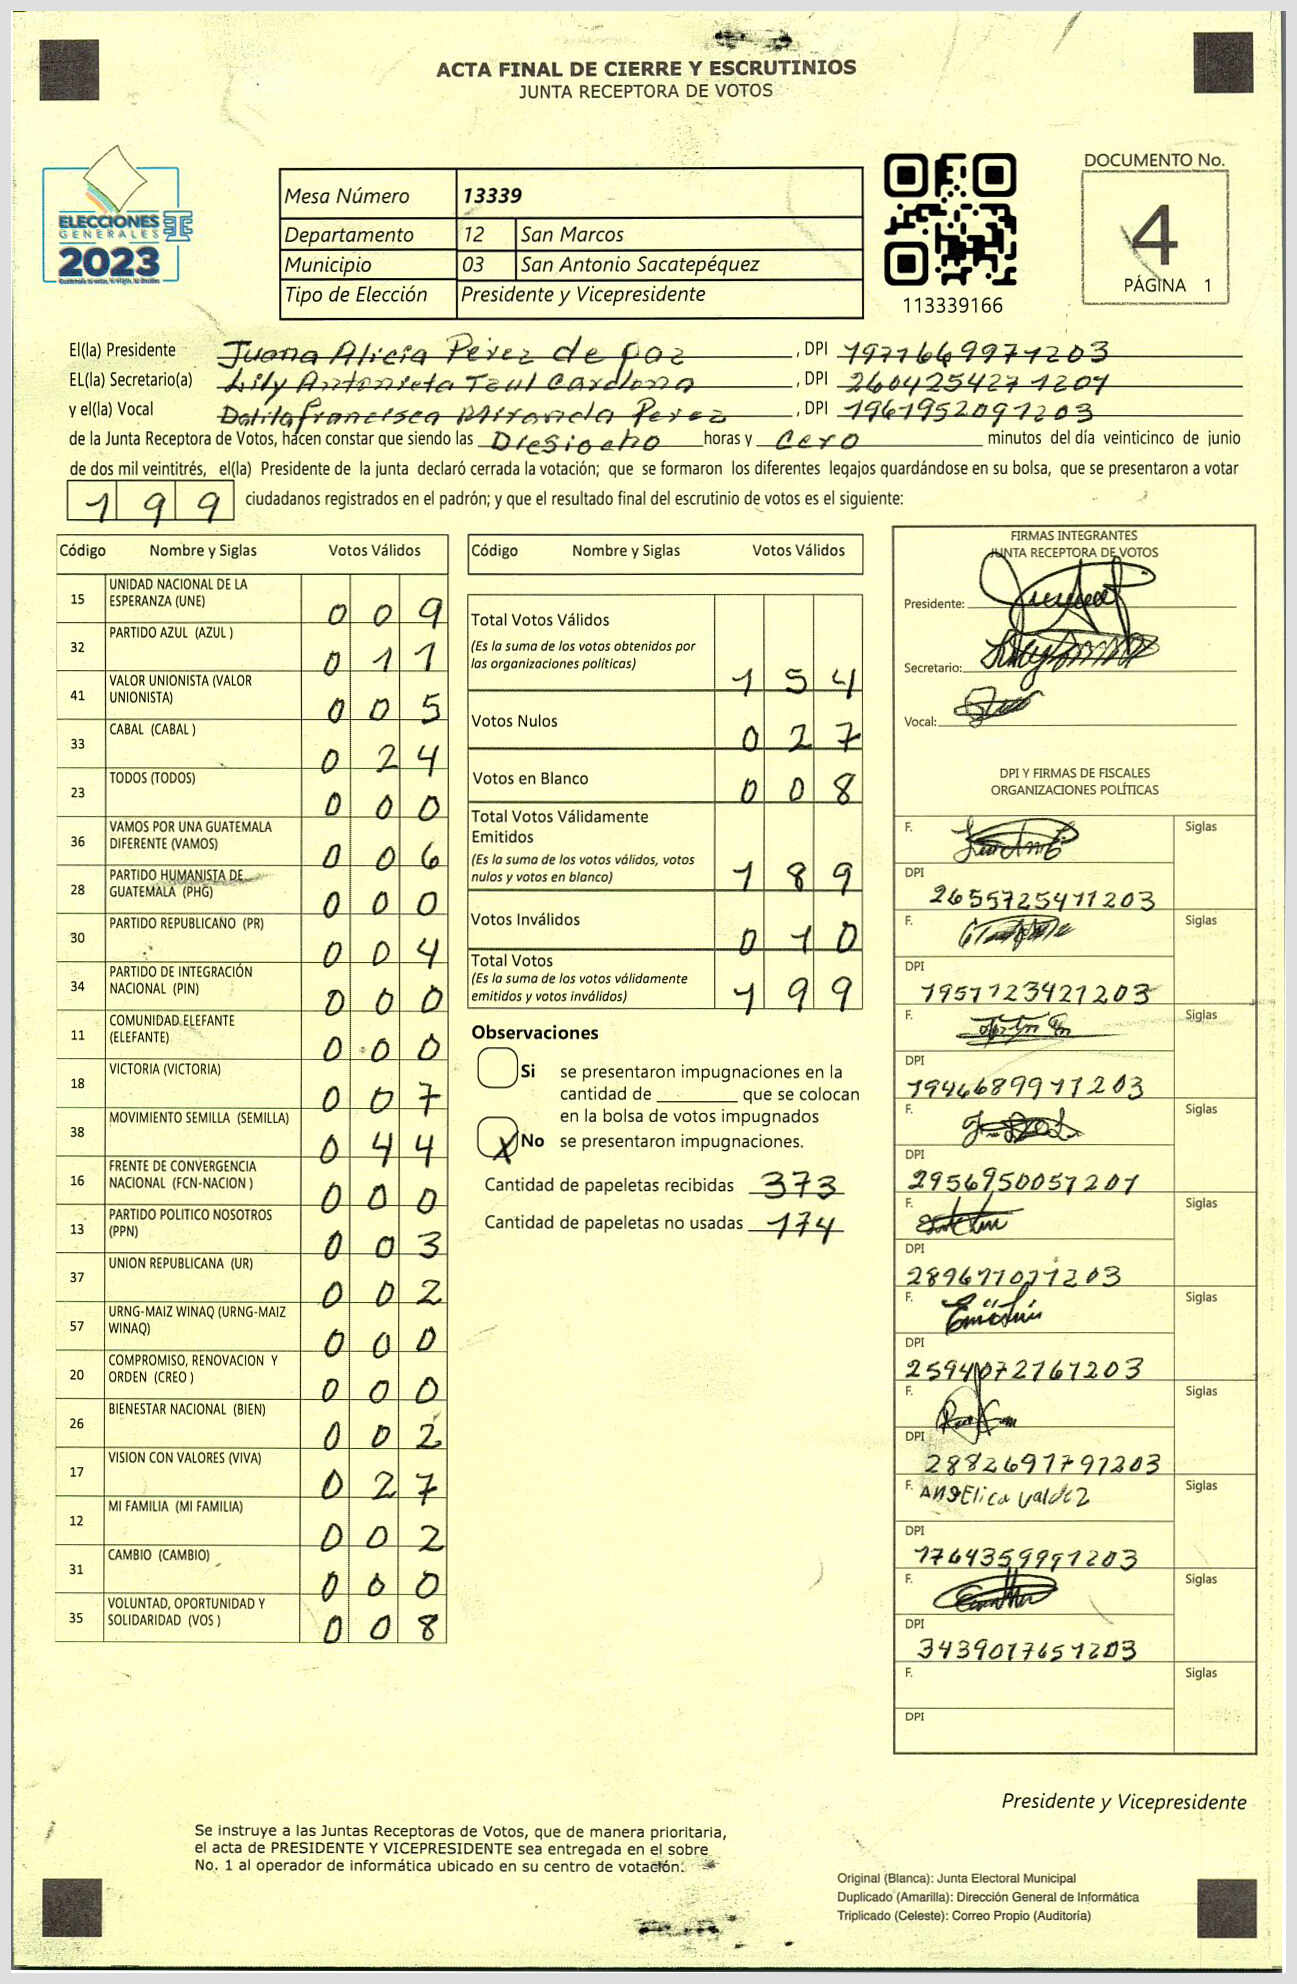 ACTA FINAL DE CIERRE Y ESCRUTINIOS
JUNTA RECEPTORA DE VOTOS
ELECCIONES
GENERALES
2023
Mesa Número 13339
Departamento 12 San Marcos
Municipio 03 San Antonio Sacatepéquez
Tipo de Elección Presidente y Vicepresidente
113339166
DOCUMENTO No.
4
PÁGINA 1
El(la) Presidente Juana Alicia Pérez de paz, DPI 1971669971203
EL(la) Secretario(a) Lily Antonieta Tzul Cardona, DPI 2604254271201
y el(la) Vocal Dalila francisca Miranda Perez, DPI 1961952091203
de la Junta Receptora de Votos, hacen constar que siendo las Diesiocho horas y Cero minutos del día veinticinco de junio
de dos mil veintitrés, el(la) Presidente de la junta declaró cerrada la votación; que se formaron los diferentes legajos guardándose en su bolsa, que se presentaron a votar
199 ciudadanos registrados en el padrón; y que el resultado final del escrutinio de votos es el siguiente:
Código Nombre y Siglas Votos Válidos
15 UNIDAD NACIONAL DE LA ESPERANZA (UNE) 009
32 PARTIDO AZUL (AZUL ) 011
41 VALOR UNIONISTA (VALOR UNIONISTA) 005
33 CABAL (CABAL ) 024
23 TODOS (TODOS) 000
36 VAMOS POR UNA GUATEMALA DIFERENTE (VAMOS) 006
28 PARTIDO HUMANISTA DE GUATEMALA (PHG) 000
30 PARTIDO REPUBLICANO (PR) 004
34 PARTIDO DE INTEGRACIÓN NACIONAL (PIN) 000
11 COMUNIDAD ELEFANTE (ELEFANTE) 000
18 VICTORIA (VICTORIA) 007
38 MOVIMIENTO SEMILLA (SEMILLA) 044
16 FRENTE DE CONVERGENCIA NACIONAL (FCN-NACION ) 000
13 PARTIDO POLITICO NOSOTROS (PPN) 003
37 UNION REPUBLICANA (UR) 002
57 URNG-MAIZ WINAQ (URNG-MAIZ WINAQ) 000
20 COMPROMISO, RENOVACION Y ORDEN (CREO ) 000
26 BIENESTAR NACIONAL (BIEN) 002
17 VISION CON VALORES (VIVA) 027
12 MI FAMILIA (MI FAMILIA) 002
31 CAMBIO (CAMBIO) 000
35 VOLUNTAD, OPORTUNIDAD Y SOLIDARIDAD (VOS ) 008
Código Nombre y Siglas Votos Válidos
Total Votos Válidos
(Es la suma de los votos obtenidos por
las organizaciones políticas) 154
Votos Nulos 027
Votos en Blanco 008
Total Votos Válidamente
Emitidos
(Es la suma de los votos válidos, votos
nulos y votos en blanco) 189
Votos Inválidos 010
Total Votos
(Es la suma de los votos válidamente
emitidos y votos inválidos) 199
Observaciones
Si se presentaron impugnaciones en la
cantidad de ________ que se colocan
en la bolsa de votos impugnados
X No se presentaron impugnaciones.
Cantidad de papeletas recibidas 373
Cantidad de papeletas no usadas 174
FIRMAS INTEGRANTES
JUNTA RECEPTORA DE VOTOS
Presidente:
Secretario:
Vocal:
DPI Y FIRMAS DE FISCALES
ORGANIZACIONES POLÍTICAS
F. Siglas
DPI
2655725411203
F. Siglas
DPI
1951123421203
F. Siglas
DPI
1946689911203
F. Siglas
DPI
2956950051201
F. Siglas
DPI
2896711071203
F. Siglas
DPI
2594072761203
F. Siglas
DPI
2882691791203
F. ANgElica valdez Siglas
DPI
1764359991203
F. Siglas
DPI
3439017651203
F. Siglas
DPI
Presidente y Vicepresidente
Se instruye a las Juntas Receptoras de Votos, que de manera prioritaria,
el acta de PRESIDENTE Y VICEPRESIDENTE sea entregada en el sobre
No. 1 al operador de informática ubicado en su centro de votación.
Original (Blanca): Junta Electoral Municipal
Duplicado (Amarilla): Dirección General de Informática
Triplicado (Celeste): Correo Propio (Auditoría)